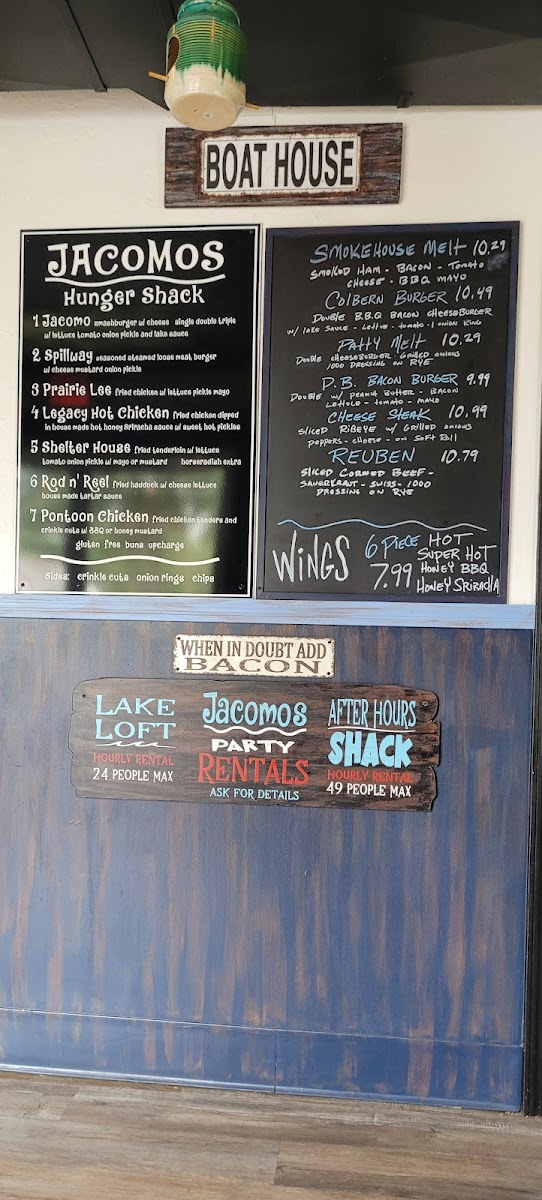 BOAT HOUSE
JACOMOS
Hunger Shack
1 Jacomo smashburger w/ cheese single double triple
w/ lettuce tomato onion pickle and lake sauce
2 Spillway seasoned steamed loose meat burger
w/ cheese mustard onion pickle
3 Prairie Lee fried chicken w/ lettuce pickle mayo
4 Legacy Hot Chicken fried chicken dipped
in house made hot honey Sriracha sauce w/ sweet hot pickles
5 Shelter House fried tenderloin w/ lettuce
tomato onion pickle w/ mayo or mustard horseradish extra
6 Rod n' Reel fried haddock w/ cheese lettuce
house made tartar sauce
7 Pontoon Chicken fried chicken tenders and
crinkle cuts w/ BBQ or honey mustard
gluten free buns upcharge
Sides: crinkle cuts onion rings chips
SMOKEHOUSE MELT 10.29
SMOKED HAM - BACON - TOMATO
CHEESE - BBQ MAYO
COLBERN BURGER 10.49
DOUBLE B.B.Q BACON CHEESEBURGER
W/ LAKE SAUCE - LETTUCE - TOMATO - 1 ONION RING
PATTY MELT 10.29
DOUBLE CHEESEBURGER - GRILLED ONIONS
1000 DRESSING ON RYE
P.B. BACON BURGER 9.99
DOUBLE W/ PEANUT BUTTER - BACON
LETTUCE - TOMATO - MAYO
CHEESE STEAK 10.99
SLICED RIBEYE W/ GRILLED ONIONS
PEPPERS - CHEESE - ON SOFT ROLL
REUBEN 10.79
SLICED CORNED BEEF -
SAUERKRAUT - SWISS - 1000
DRESSING ON RYE
WINGS 6 PIECE 7.99
HOT
SUPER HOT
HONEY BBQ
HONEY SRIRACHA
WHEN IN DOUBT ADD
BACON
LAKE
LOFT
HOURLY RENTAL
24 PEOPLE MAX
Jacomos
PARTY
RENTALS
ASK FOR DETAILS
AFTER HOURS
SHACK
HOURLY RENTAL
49 PEOPLE MAX